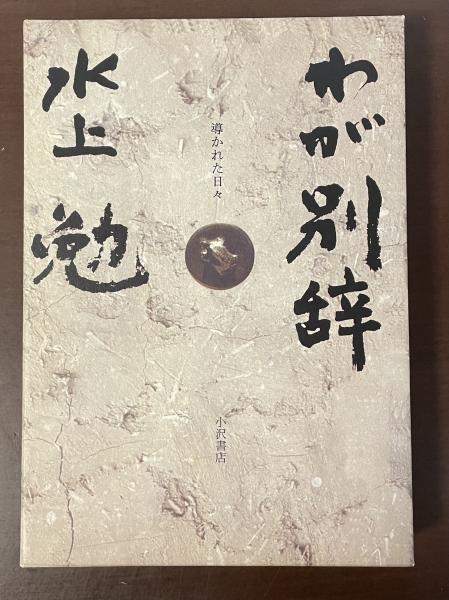 わが別辞
導かれた日々
水上勉
小沢書店